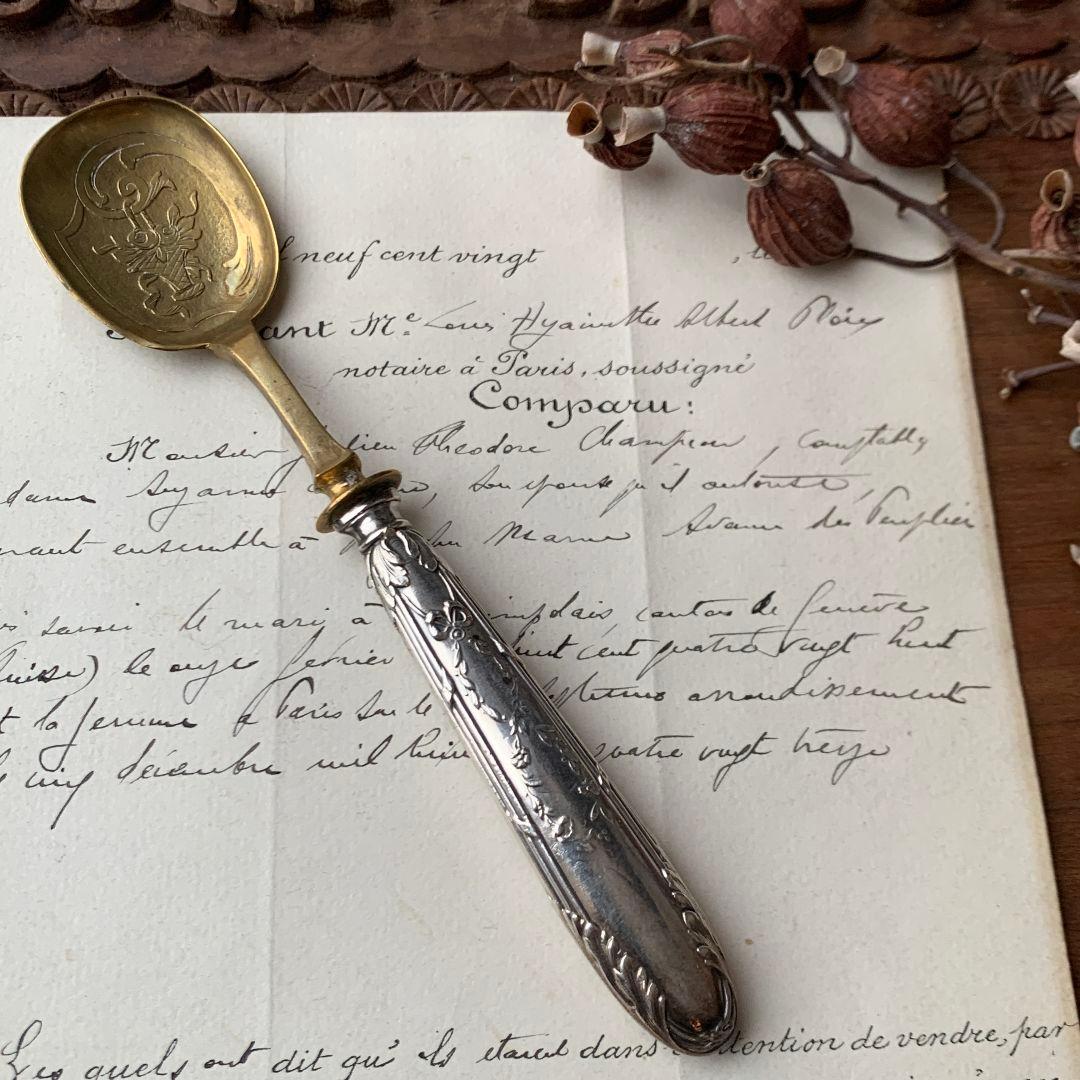 neuf cent vingt
ant Me Louis Hyacinthe Albert
notaire à Paris, soussigné
Comparu:
Monsieur Théodore Champeau, comptable
dame Suzanne, son épouse qu'il autorise,
ensemble à Marne Avenue des Peuplier
le mari à canton de Genève
le onze février cent quatre vingt huit
la femme à Paris sur le arrondissement
cinq décembre mil quatre vingt treize
Lesquels ont dit qu'ils étaient dans intention de vendre, par